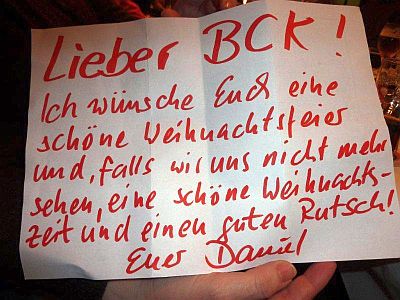 Lieber BCK!
Ich wünsche Euch eine
schöne Weihnachtsfeier
und, falls wir uns nicht mehr
sehen, eine schöne Weihnachts-
zeit und einen guten Rutsch!
Euer Daniel